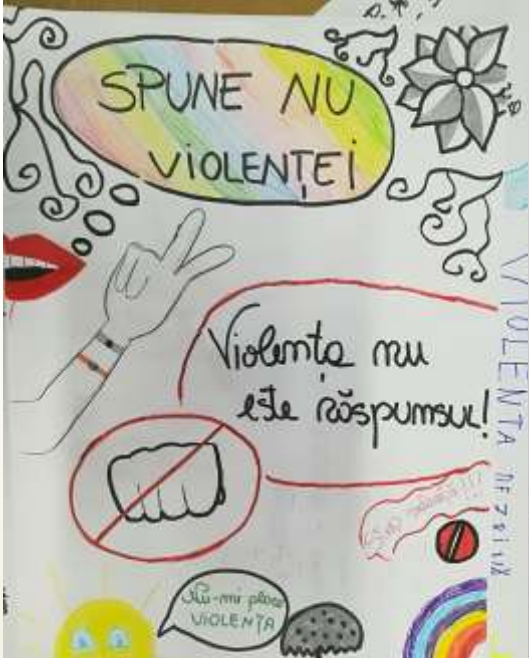 SPUNE NU
VIOLENȚEI
Violența nu
este răspunsul!
VIOLENTA
Nu-mi place
VIOLENȚA